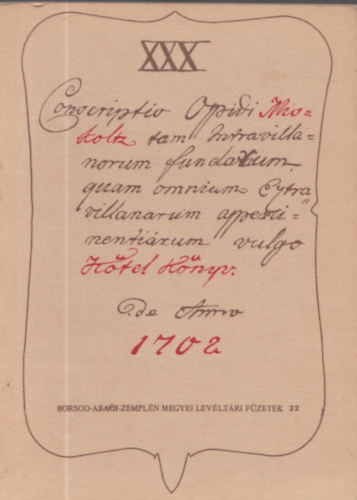 XXX
Conscriptio Opidi Mis=
koltz tam Intravilla=
norum fundorum
quam omnium Extra
villanarum apperti=
nentiárum vulgo
Kőtel Kőnyv.
de Anno
1702
BORSOD-ABAÚJ-ZEMPLÉN MEGYEI LEVÉLTÁRI FÜZETEK 22